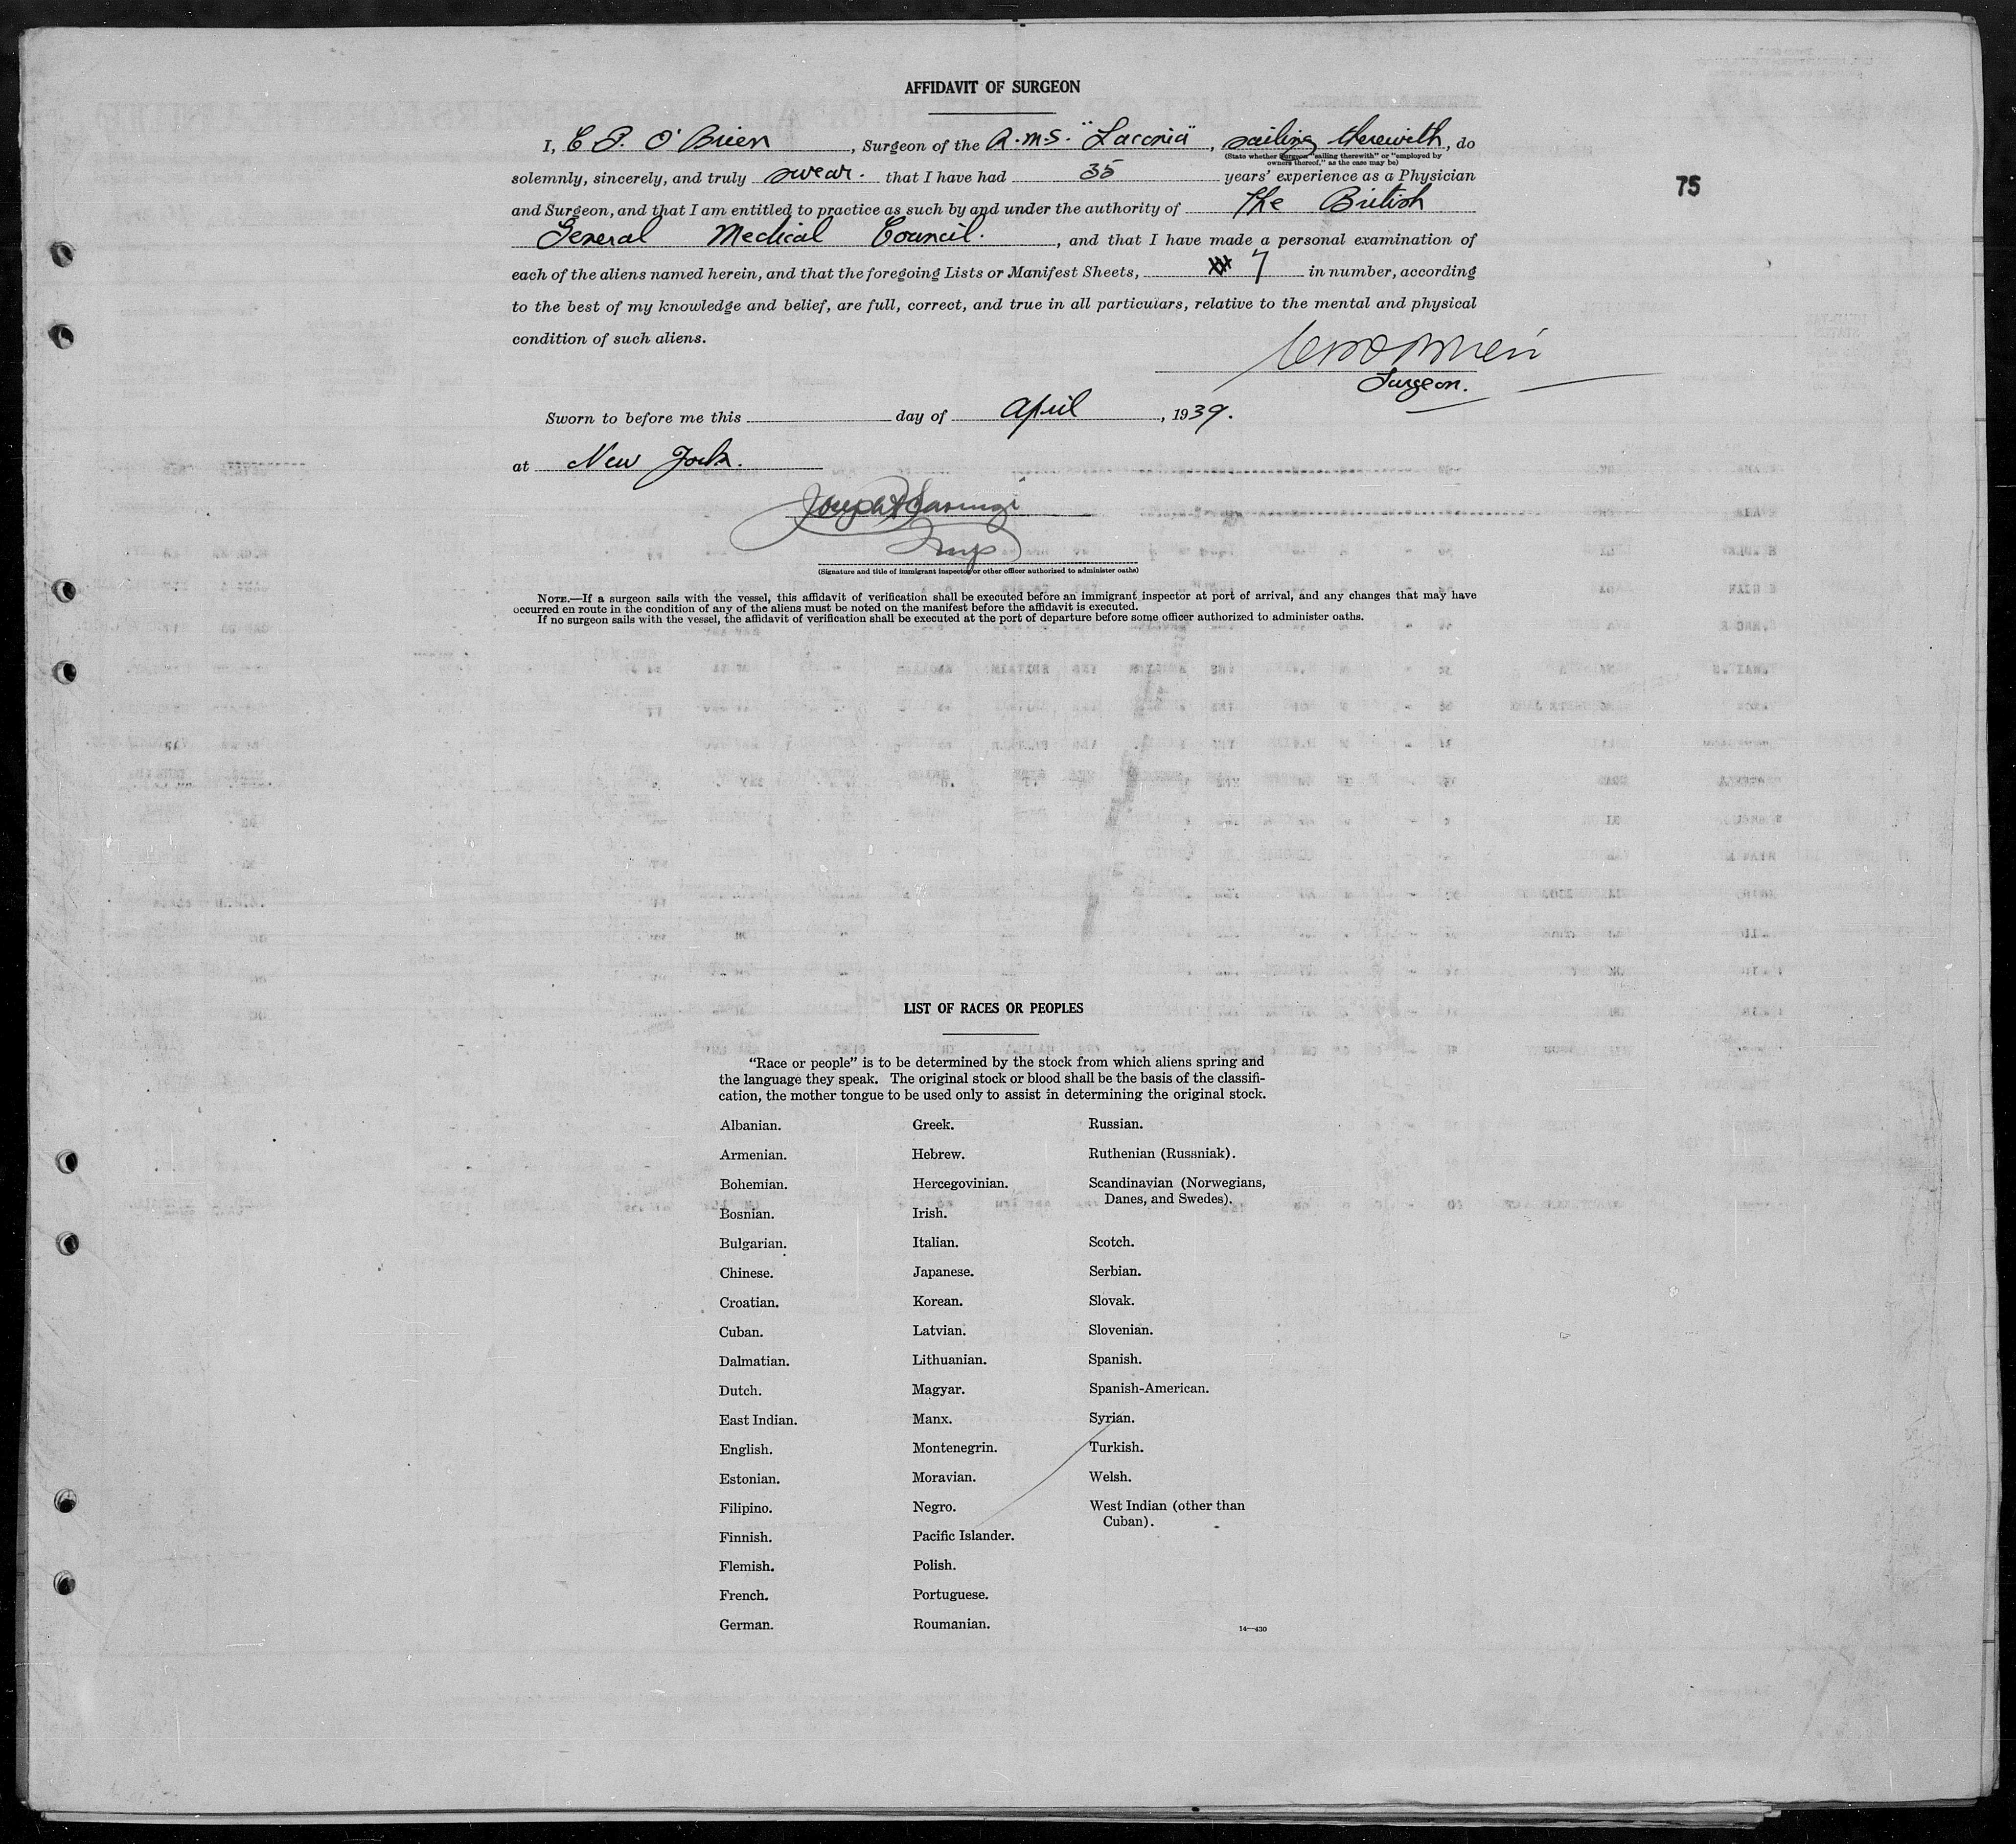 AFFIDAVIT OF SURGEON
I, C P. O'Brien, Surgeon of the R.M.S. "Laconia", sailing therewith, do
(State whether Surgeon "sailing therewith" or "employed by
owners thereof," as the case may be)
solemnly, sincerely, and truly swear. that I have had 35 years' experience as a Physician
75
and Surgeon, and that I am entitled to practice as such by and under the authority of The British
General Medical Council., and that I have made a personal examination of
each of the aliens named herein, and that the foregoing Lists or Manifest Sheets, 7 in number, according
to the best of my knowledge and belief, are full, correct, and true in all particulars, relative to the mental and physical
condition of such aliens.
Surgeon.
Sworn to before me this day of April, 1939.
at New York.
Joseph
Insp
(Signature and title of immigrant inspector or other officer authorized to administer oaths)
NOTE.—If a surgeon sails with the vessel, this affidavit of verification shall be executed before an immigrant inspector at port of arrival, and any changes that may have
occurred en route in the condition of any of the aliens must be noted on the manifest before the affidavit is executed.
If no surgeon sails with the vessel, the affidavit of verification shall be executed at the port of departure before some officer authorized to administer oaths.
LIST OF RACES OR PEOPLES
"Race or people" is to be determined by the stock from which aliens spring and
the language they speak. The original stock or blood shall be the basis of the classifi-
cation, the mother tongue to be used only to assist in determining the original stock.
Albanian.
Armenian.
Bohemian.
Bosnian.
Bulgarian.
Chinese.
Croatian.
Cuban.
Dalmatian.
Dutch.
East Indian.
English.
Estonian.
Filipino.
Finnish.
Flemish.
French.
German.
Greek.
Hebrew.
Hercegovinian.
Irish.
Italian.
Japanese.
Korean.
Latvian.
Lithuanian.
Magyar.
Manx.
Montenegrin.
Moravian.
Negro.
Pacific Islander.
Polish.
Portuguese.
Roumanian.
Russian.
Ruthenian (Russniak).
Scandinavian (Norwegians,
Danes, and Swedes).
Scotch.
Serbian.
Slovak.
Slovenian.
Spanish.
Spanish-American.
Syrian.
Turkish.
Welsh.
West Indian (other than
Cuban).
14—430